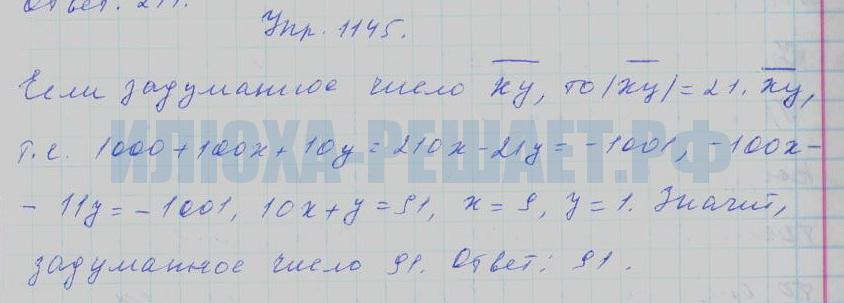 Ответ: 2
Упр. 1145.
Если задуманное число x̅y̅, то |x̅y̅| = 21. x̅y̅,
т.е. 1000+100x+10y=210x-21y=-1001, -100x-
- 11y=-1001, 10x+y=91, x=9, y=1. Значит,
задуманное число 91. Ответ: 91.
ИЛЮХА-РЕШАЕТ.РФ